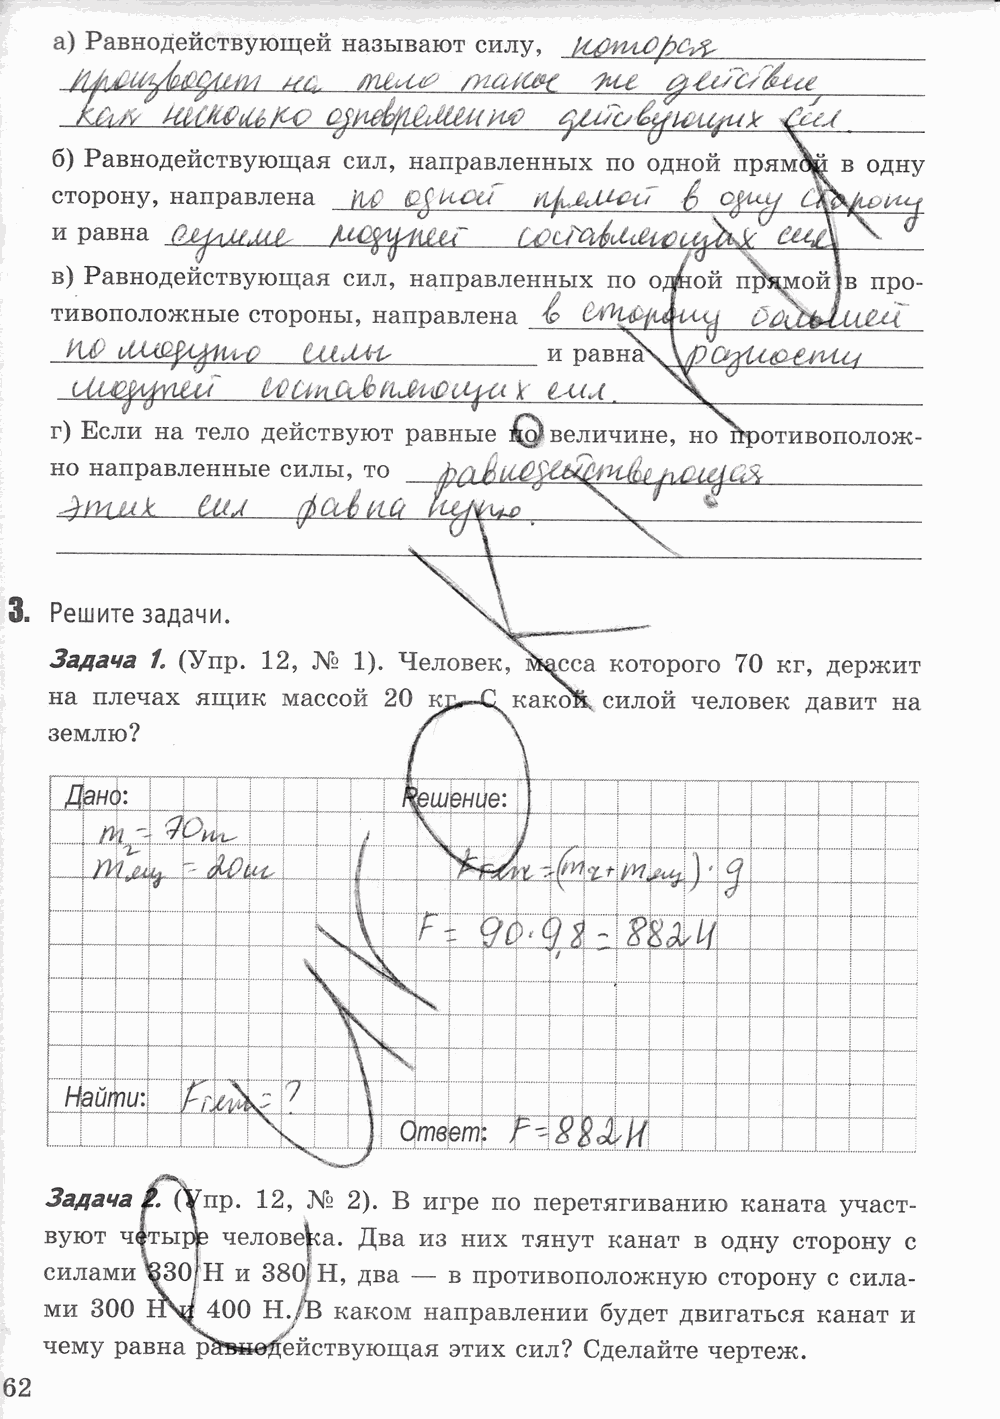 а) Равнодействующей называют силу, которая
производит на тело такое же действие,
как несколько одновременно действующих сил.
б) Равнодействующая сил, направленных по одной прямой в одну
сторону, направлена по одной прямой в одну сторону
и равна сумме модулей составляющих сил
в) Равнодействующая сил, направленных по одной прямой в про-
тивоположные стороны, направлена в сторону большей
по модулю силы и равна разности
модулей составляющих сил.
г) Если на тело действуют равные по величине, но противополож-
но направленные силы, то равнодействующая
этих сил равна нулю.
3. Решите задачи.
Задача 1. (Упр. 12, № 1). Человек, масса которого 70 кг, держит
на плечах ящик массой 20 кг. С какой силой человек давит на
землю?
Дано: Решение:
m = 70 кг
m ящ = 20 кг
Fтяж = (mч + m ящ) · g
F = 90 · 9,8 = 882 Н
Найти: Fтяж = ?
Ответ: F = 882 Н
Задача 2. (Упр. 12, № 2). В игре по перетягиванию каната участ-
вуют четыре человека. Два из них тянут канат в одну сторону с
силами 330 Н и 380 Н, два — в противоположную сторону с сила-
ми 300 Н и 400 Н. В каком направлении будет двигаться канат и
чему равна равнодействующая этих сил? Сделайте чертеж.
62